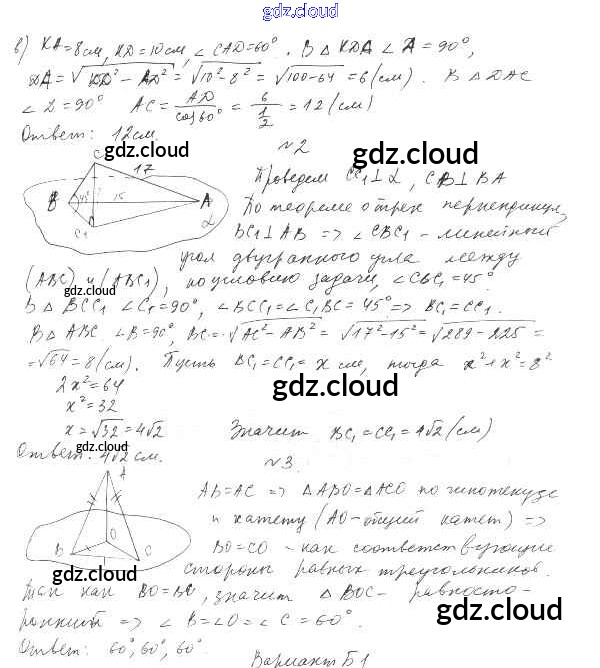 gdz.cloud
в) KA=8см, KD=10см, ∠CAD=60°. В △KDA ∠A=90°,
DA=√KD²-AD²=√10²-8²=√100-64=6(см). В △DAC
∠D=90° AC=AD/cos60°=6/½=12(см)
Ответ: 12см.
gdz.cloud
№2
gdz.cloud
C 17
B 45° 15 A
C₁ α
Проведем CC₁⊥α, CB⊥BA
По теореме о трех перпендикул.
BC₁⊥AB => ∠CBC₁ - линейный
угол двугранного угла между
(ABC) и (ABC₁), по условию задачи, ∠CBC₁=45°
gdz.cloud
gdz.cloud
В △BCC₁ ∠C₁=90°, ∠BCC₁=∠C₁BC=45° => BC₁=CC₁.
В △ABC ∠B=90°, BC=√AC²-AB²=√17²-15²=√289-225=
=√64=8(см). Пусть BC₁=CC₁=x см, тогда x²+x²=8²
2x²=64
gdz.cloud
x²=32
x=√32=4√2 Значит BC₁=CC₁=4√2(см)
gdz.cloud
Ответ: 4√2 см.
№3.
A
O
B C
gdz.cloud
AB=AC => △ABO=△ACO по гипотенузе
и катету (AO-общий катет) =>
BO=CO - как соответствующие
стороны равных треугольников.
gdz.cloud
Так как BO=BC, значит △BOC- равносто-
ронний => ∠B=∠O=∠C=60°.
gdz.cloud
Ответ: 60°, 60°, 60°.
gdz.cloud
Вариант Б1